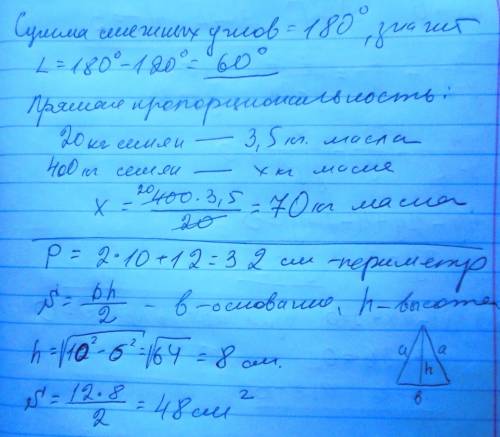 Сумма смежных углов = 180°, значит
L = 180° - 120° = 60°
Прямая пропорциональность:
20 кг семян — 3,5 кг. масла
400 кг семян — x кг масла
x = 20 400 · 3,5 / 20 = 70 кг масла
P = 2 · 10 + 12 = 32 см - периметр
S = bh / 2 - в - основание, h - высота
h = √10² - 6² = √64 = 8 см.
S = 12 · 8 / 2 = 48 см²
a a
h
в